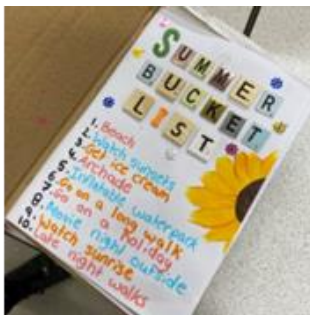 SUMMER
BUCKET
LIST
1. Beach
2. Watch sunsets
3. Get ice cream
4. Archade
5. Inflatable waterpark
6. Go on a long walk
7. Go on a holiday
8. Movie night outside
9. Watch sunrise
10. Late night walks